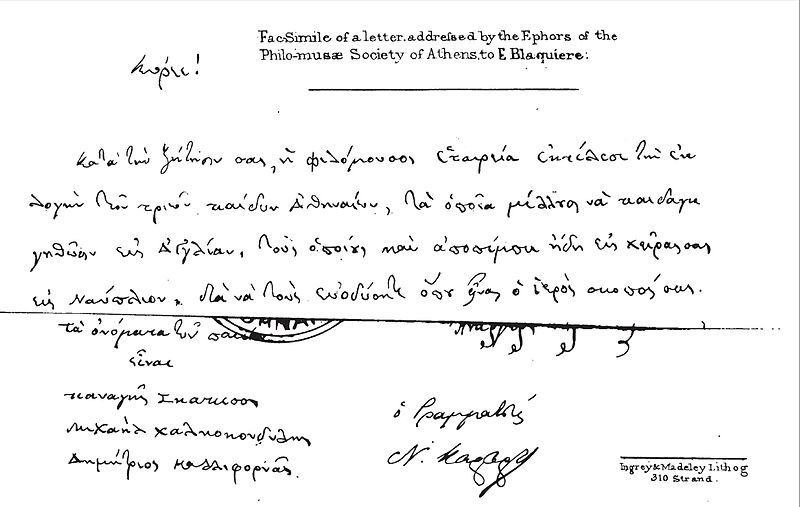 Fac-Simile of a letter addressed by the Ephors of the
Philo-musæ Society of Athens, to E Blaquiere:
Κύριε!
κατὰ τὴν ζήτησίν σας, ἡ φιλόμουσος ἑταιρεία ἐκτέλεσε τὴν ἐκ
λογὴν τῶν τριῶν παίδων Ἀθηναίων, τὰ ὁποῖα μέλλουν νὰ παιδαγω
γηθῶσιν εἰς Ἀγγλίαν, τοὺς ὁποίους καὶ ἀποπέμπει ἤδη εἰς χεῖρας σας
εἰς Ναύπλιον, διὰ νὰ τοὺς εὐοδώσητε ὅπου εἶναι ὁ ἱερὸς σκοπός σας.
τὰ ὀνόματα τῶν παίδων
εἶναι
Παναγῆς
Μιχαὴλ Χαλκοκονδύλης
Δημήτριος Καλλιφορνᾶς.
ὁ Γραμματεύς
Ν.
Ingrey & Madeley Lithog
310 Strand.